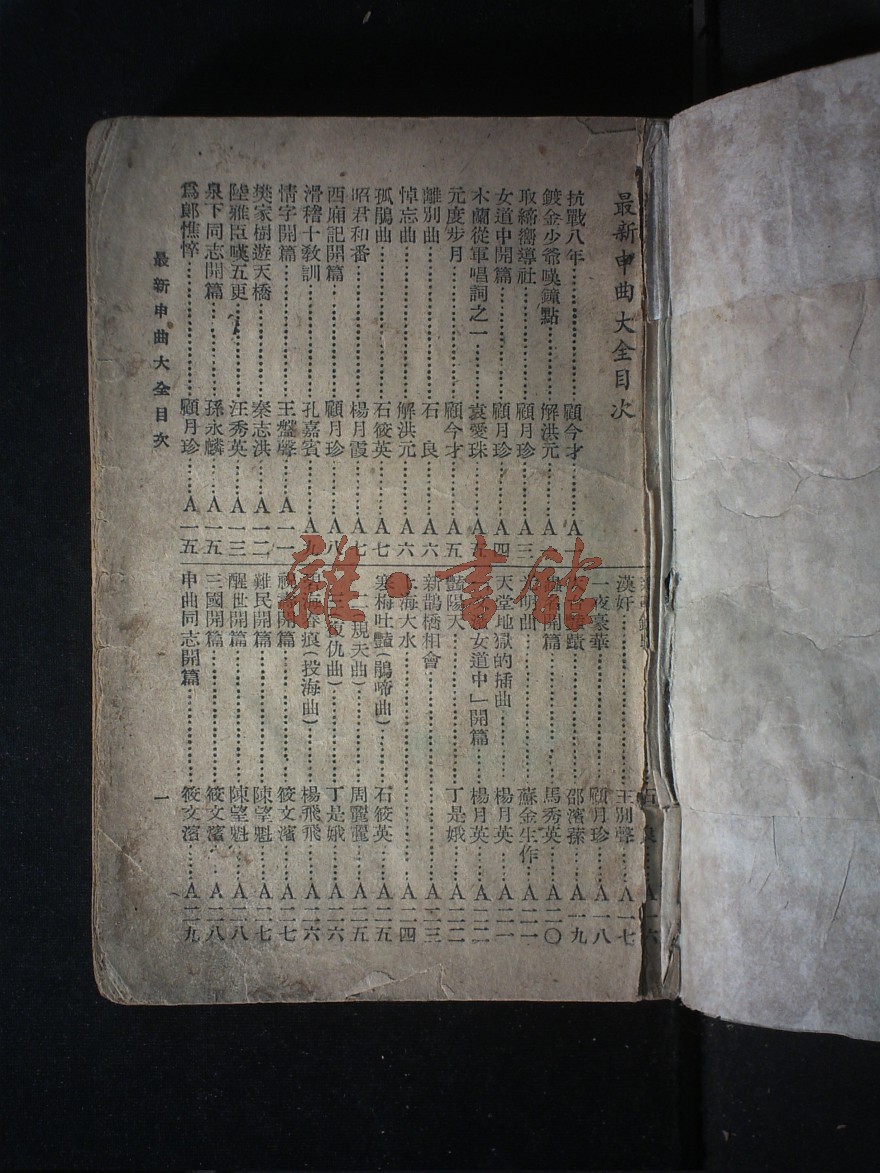 最新申曲大全目次
抗戰八年……顧今才……A一
鍍金少爺嘆鐘點……解洪元……A一
取締嚮導社……顧月珍……A三
女道中開篇……顧月珍……A四
木蘭從軍唱詞之一……袁愛珠……A五
元度步月……顧今才……A五
離別曲……石良……A六
悼忘曲……解洪元……A六
孤鵑曲……石筱英……A七
昭君和番……楊月霞……A七
西廂記開篇……顧月珍……A八
滑稽十教訓……孔嘉賓……A九
情字開篇……王盤聲……A一一
樊家樹遊天橋……秦志洪……A一二
陸雅臣嘆五更……汪秀英……A一三
泉下同志開篇……孫永麟……A一五
爲郎憔悴……顧月珍……A一五
石良……A一六
漢奸……王別聲……A一七
一夜豪華……顧月珍……A一八
蹟……邵濱蓀……A一九
開篇……馬秀英……A二〇
明曲……蘇金生作……A二一
天堂地獄的插曲……楊月英……A二一
女道中」開篇……楊月英……A二二
豔陽天……丁是娥……A二二
新鵲橋相會……A二三
上海大水……A二四
寒梅吐豔(鵑啼曲)……石筱英……A二五
現天曲)……周麗麗……A二五
復仇曲)……丁是娥……A二六
碧海春痕(投海曲)……楊飛飛……A二六
開篇……筱文濱……A二七
難民開篇……陳望魁……A二七
醒世開篇……陳望魁……A二八
三國開篇……筱文濱……A二八
申曲同志開篇……筱文濱……A二九
最新申曲大全目次
一
雜·書館